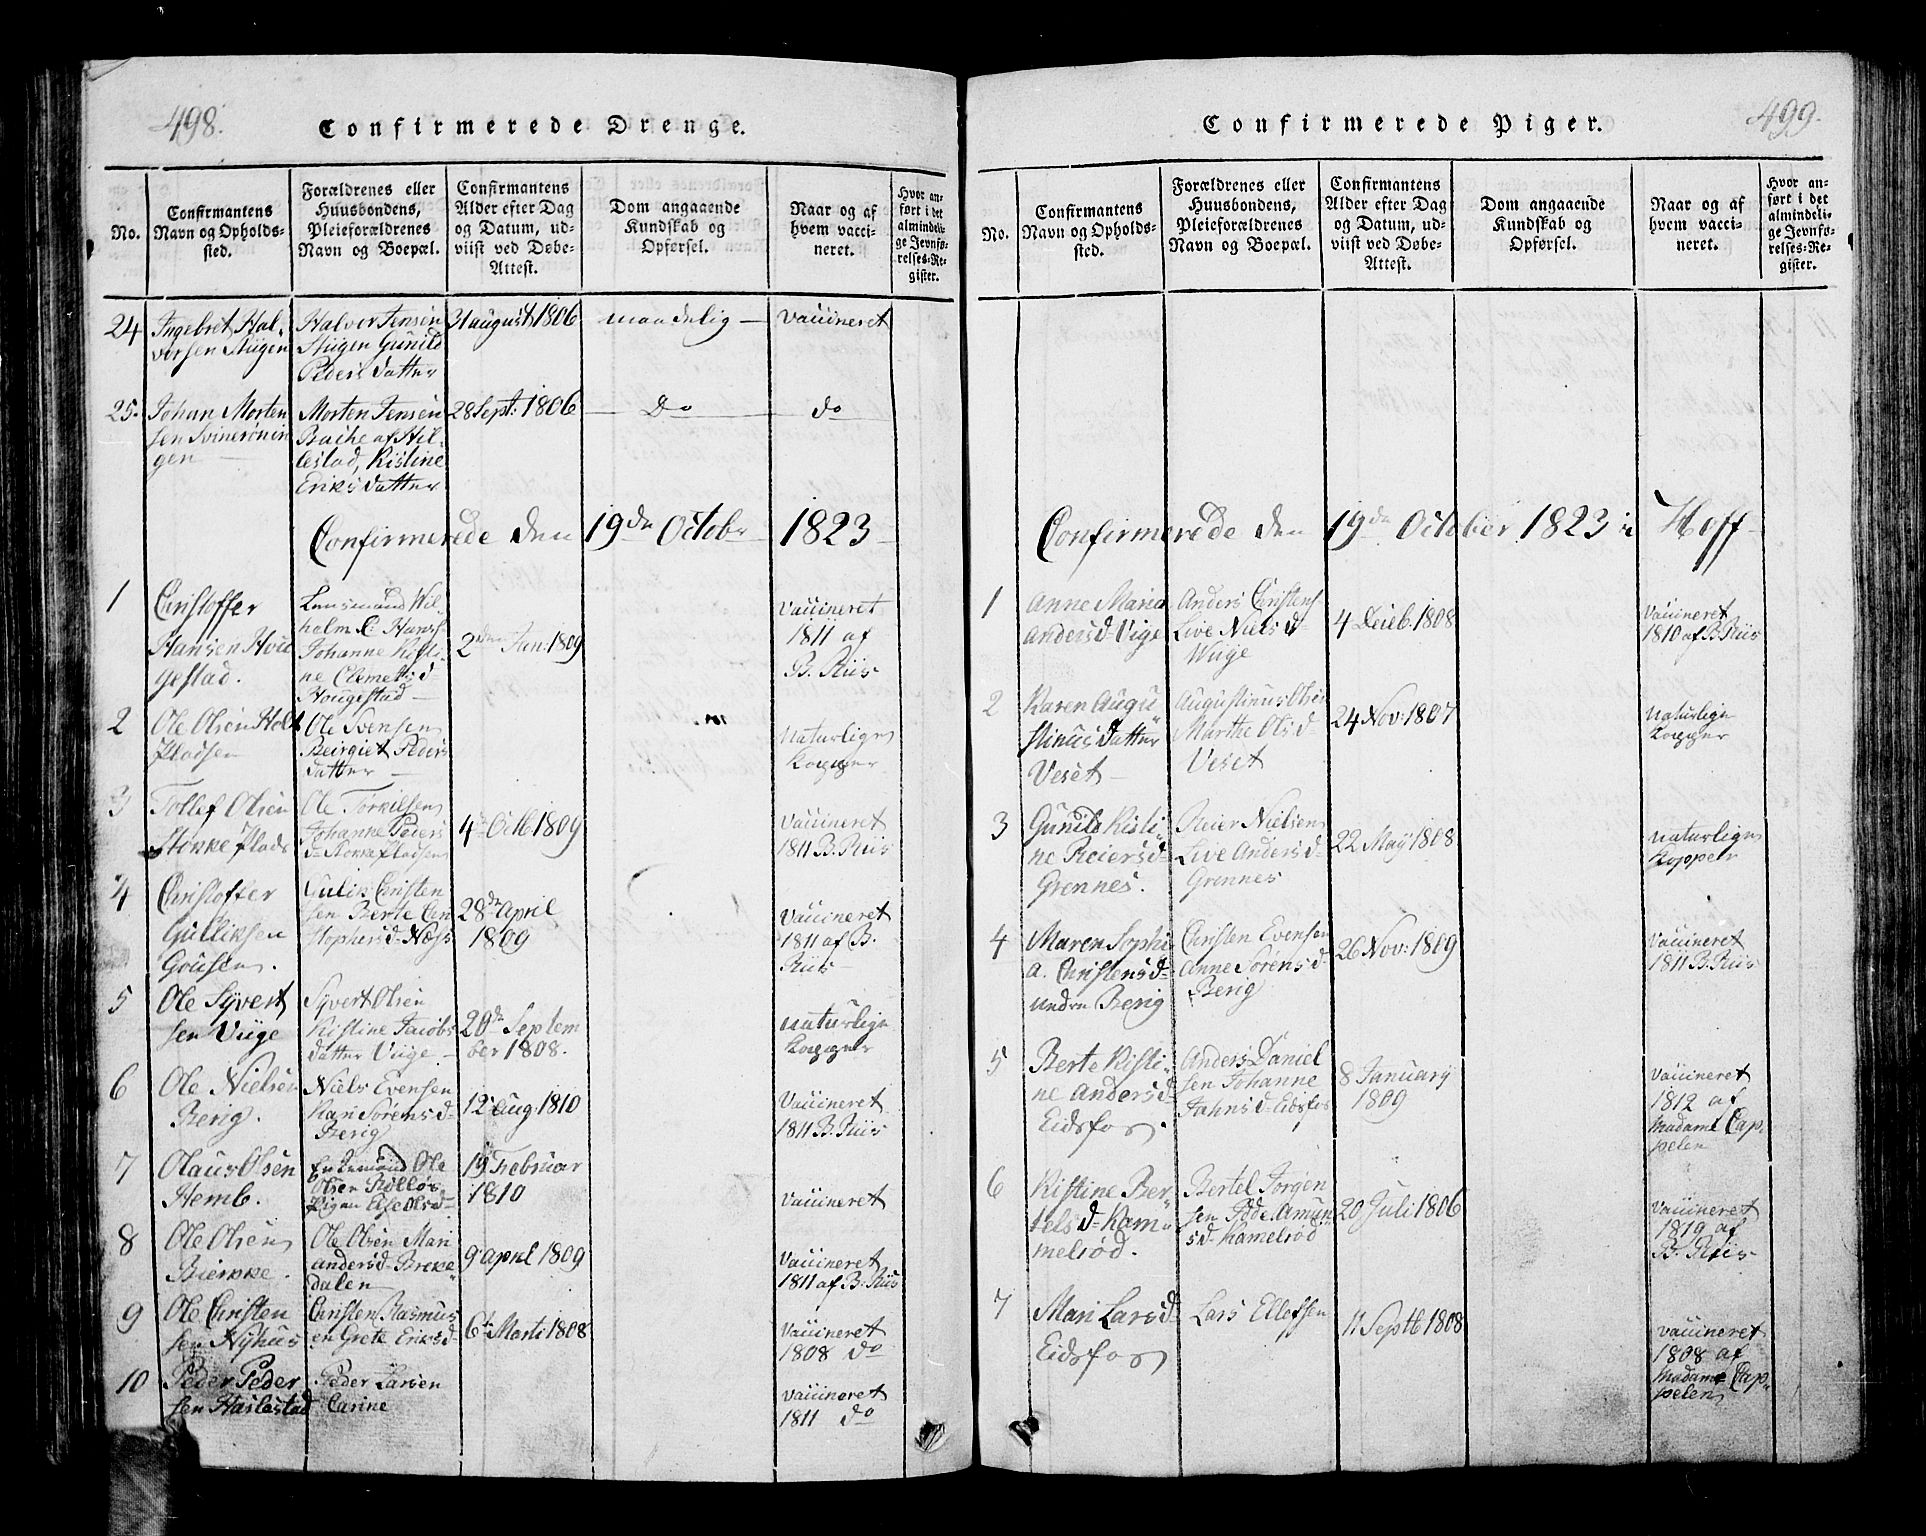 498.
Confirmerede Drenge.
No.
Confirmantens
Navn og Opholds-
sted.
Forældrenes eller
Huusbondens,
Pleieforældrenes
Navn og Boepæl.
Confirmantens
Alder efter Dag
og Datum, ud-
viist ved Døbe-
Attest.
Dom angaaende
Kundskab og
Opførsel.
Naar og af
hvem vacci-
neret.
Hvor an-
ført i det
almindeli-
ge Jevnfø-
relses-Re-
gister.
24 Ingebret Hal-
vorsen Stiigen
Halver Jensen
Stiigen Gunild
Peders datter
31 august 1806
maadelig
vaccineret
25. Johan Morten
sen Svinerönin
gen
Morten Jensen
Bache af Hil-
lestad, Kistine
Eriks datter
28 Sept: 1806
Do
do
Confirmerede den 19de Octobr 1823
1 Christoffer
Hansen Hou
gestad.
Lensmand Wil-
helm C: Hans
Johanne Kisti-
ne Clemetsd
Hougestad
2den Jan: 1809
vaccineret
1811 af
B. Riis
2 Ole Olsen Holt
Pladsen
Ole Svensen
Beirgiet Peders
datter
Naturlige
Kopper
3 Tollef Olsen
Störke Plads
Ole Torkilsen
Johanne Peders
d- Storke Pladsen
4de Octb 1809
vaccineret
1811 B. Riis
4 Christoffer
Gulliksen
Gousen.
Gulik Christen
sen Berte Chri
stophersd- Næss
28de April
1809
vaccineret
1811 af B.
Riis
5 Ole Syvert
sen Viige
Syvert Olsen
Kistine Jacobs
datter Viige
20de Septem
ber 1808.
Naturlige
Kopper
6 Ole Nielsen
Berig.
Niels Evensen
Kari Sorensd-
Berig
12 Aug. 1810
Vaccineret
1811 B. Riis
7 Olaus Olsen
Hemb.
Enkemand Ole
Olsen
Pigen Else Olsd-
19 Februar
1810
vaccineret
8 Ole Olsen
Bierkke.
Ole Olsen Mari
andersd- Breke
dalen
9 April 1809
Vaccineret
1811 af B. Riis
9 Ole Christen
sen Nyhus
Christen Rasmus
en Grete Eriksd-
6te Marti 1808
Vaccineret
1808 do
10 Peder Peder
sen Haslestad
Peder Larsen
Carine
vaccineret
1811 do
499.
Confirmerede Piger.
No.
Confirmantens
Navn og Opholds-
sted.
Forældrenes eller
Huusbondens,
Pleieforældrenes
Navn og Boepæl.
Confirmantens
Alder efter Dag
og Datum, ud-
viist ved Døbe-
Attest.
Dom angaaende
Kundskab og
Opførsel.
Naar og af
hvem vacci-
neret.
Hvor an-
ført i det
almindeli-
ge Jevnfø-
relses-Re-
gister.
Confirmerede den 19de October 1823 i Hoff
1 Anne Maria
Andersd- Vige
Anders Christens
Live Nielsd-
Wiige
4 Deceb. 1808
vaccineret
1810 af B. Riis
2 Karen Augu
stinus datter
Veset
Augustinus Olsen
Marthe Olsd-
Veset
24 Nov: 1807
Naturlige
Kopper
3 Gunild Kisti
ne Reiersd-
Grennes.
Reier Nielsen
Live Andersd-
Grennes
22 May 1808
Naturlige
Kopper
4 Maren Sophi
a. Christensd-
undre Berig
Christen Evensen
Anne Sorensd-
Berig
26 Nov: 1809
Vaccineret
1811 B. Riis
5 Berte Kisti
ne Andersd-
Eidsfos.
Anders Daniel
sen Johanne
Jahnsd- Eidsfos
8 January
1809
Vaccineret
1812 af
Madame Cap-
pelen
6 Kistine Ber
telsd- Kam
melröd.
Bertel Jorgen
sen Tode Amun
sd- Kamelröd
20 Juli 1806
Vaccineret
1819 af
B. Riis
7 Mari Larsd-
Eidsfos
Lars Ellefsen
11 Septb 1808
vaccineret
1808 af
Madame Cap-
pelen